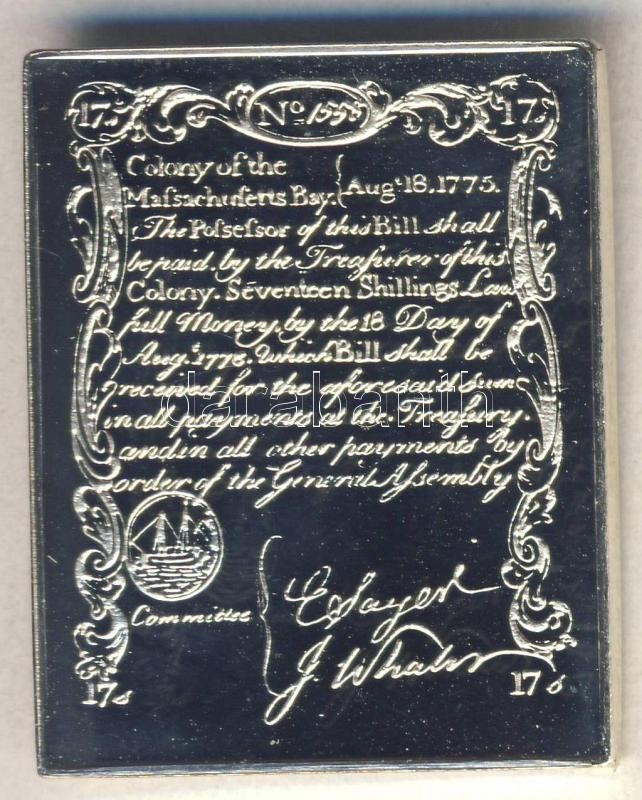 17s No 1558 17s
Colony of the
Maſsachuſetts Bay. { Augt. 18. 1775.
The Poſseſsor of this Bill shall
be paid. by the Treaſurer of this
Colony. Seventeen Shillings. Law
full Money, by the 18 Day of
Augt. 1778. Which Bill shall be
received for the aforesaid sum
in all payments at the Treaſury.
and in all other payments by
order of the General Aſsembly
Committee
17s 17s
darabanth